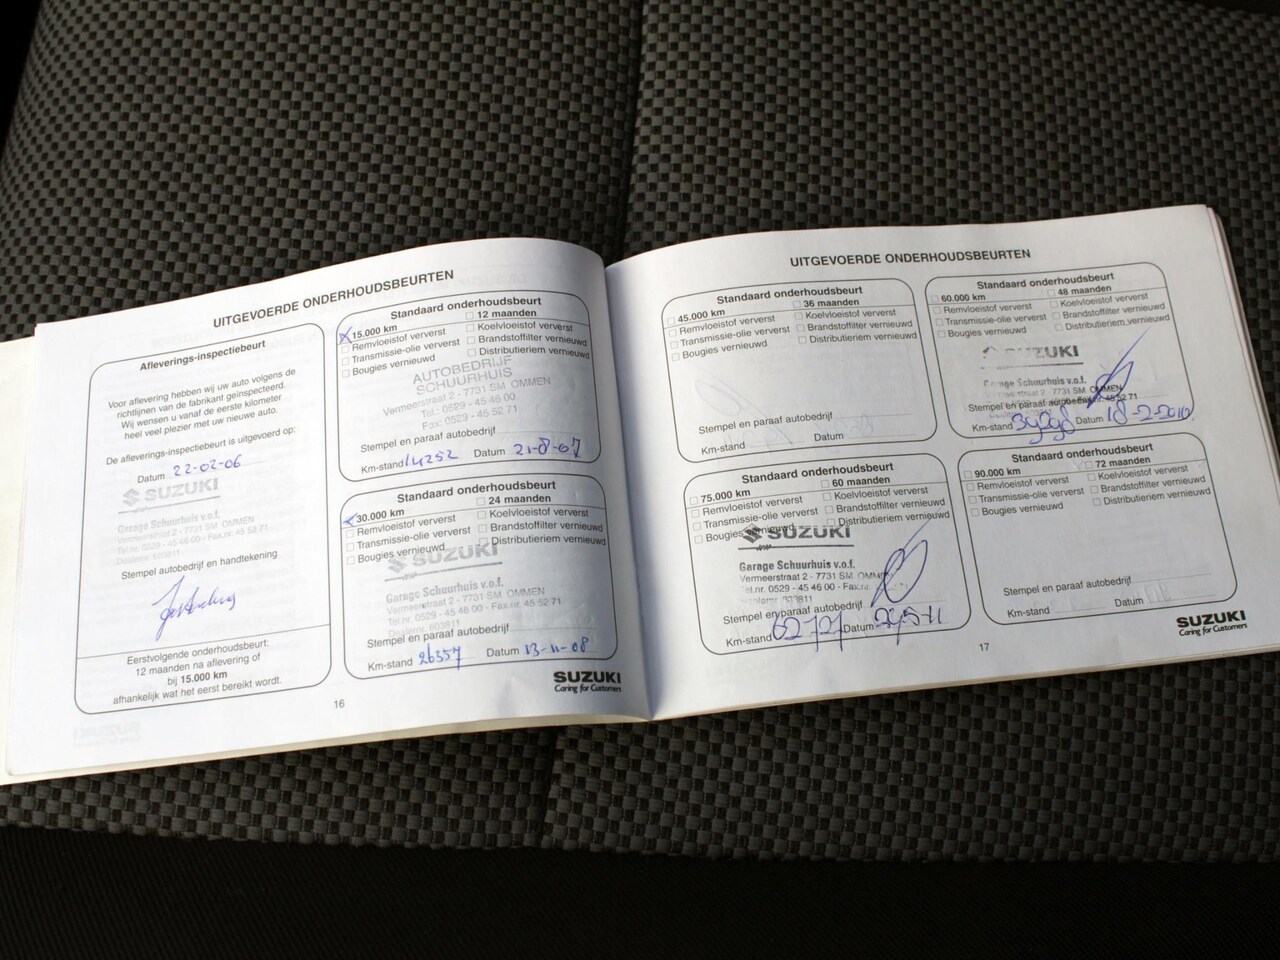 UITGEVOERDE ONDERHOUDSBEURTEN
Afleverings-inspectiebeurt
Voor aflevering hebben wij uw auto volgens de
richtlijnen van de fabrikant geïnspecteerd.
Wij wensen u vanaf de eerste kilometer
heel veel plezier met uw nieuwe auto.
De afleverings-inspectiebeurt is uitgevoerd op:
Datum 22-02-06
SUZUKI
Garage Schuurhuis v.o.f.
Vermeerstraat 2 - 7731 SM OMMEN
Tel.nr. 0529 - 45 46 00 - Fax.nr. 45 52 71
Dealernr. 603811
Stempel autobedrijf en handtekening
Eerstvolgende onderhoudsbeurt:
12 maanden na aflevering of
bij 15.000 km
afhankelijk wat het eerst bereikt wordt.
Standaard onderhoudsbeurt
15.000 km 12 maanden
Remvloeistof ververst Koelvloeistof ververst
Transmissie-olie ververst Brandstoffilter vernieuwd
Bougies vernieuwd Distributieriem vernieuwd
AUTOBEDRIJF
SCHUURHUIS
Vermeerstraat 2 - 7731 SM OMMEN
Tel.: 0529 - 45 46 00
Fax: 0529 - 45 52 71
Stempel en paraaf autobedrijf
Km-stand 14252 Datum 21-8-07
Standaard onderhoudsbeurt
30.000 km 24 maanden
Remvloeistof ververst Koelvloeistof ververst
Transmissie-olie ververst Brandstoffilter vernieuwd
Bougies vernieuwd Distributieriem vernieuwd
SUZUKI
Garage Schuurhuis v.o.f.
Vermeerstraat 2 - 7731 SM OMMEN
Tel.nr. 0529 - 45 46 00 - Fax.nr. 45 52 71
Dealernr. 603811
Stempel en paraaf autobedrijf
Km-stand 26357 Datum 13-11-08
SUZUKI
Caring for Customers
16
UITGEVOERDE ONDERHOUDSBEURTEN
Standaard onderhoudsbeurt
45.000 km 36 maanden
Remvloeistof ververst Koelvloeistof ververst
Transmissie-olie ververst Brandstoffilter vernieuwd
Bougies vernieuwd Distributieriem vernieuwd
Stempel en paraaf autobedrijf
Km-stand Datum
Standaard onderhoudsbeurt
60.000 km 48 maanden
Remvloeistof ververst Koelvloeistof ververst
Transmissie-olie ververst Brandstoffilter vernieuwd
Bougies vernieuwd Distributieriem vernieuwd
SUZUKI
Garage Schuurhuis v.o.f.
Vermeerstraat 2 - 7731 SM OMMEN
Stempel en paraaf autobedrijf
Km-stand Datum 18-2-2010
Standaard onderhoudsbeurt
75.000 km 60 maanden
Remvloeistof ververst Koelvloeistof ververst
Transmissie-olie ververst Brandstoffilter vernieuwd
Bougies vernieuwd Distributieriem vernieuwd
SUZUKI
Garage Schuurhuis v.o.f.
Vermeerstraat 2 - 7731 SM OMMEN
Tel.nr. 0529 - 45 46 00 - Fax.nr. 45 52 71
Dealernr. 603811
Stempel en paraaf autobedrijf
Km-stand 62727 Datum
Standaard onderhoudsbeurt
90.000 km 72 maanden
Remvloeistof ververst Koelvloeistof ververst
Transmissie-olie ververst Brandstoffilter vernieuwd
Bougies vernieuwd Distributieriem vernieuwd
Stempel en paraaf autobedrijf
Km-stand Datum
SUZUKI
Caring for Customers
17